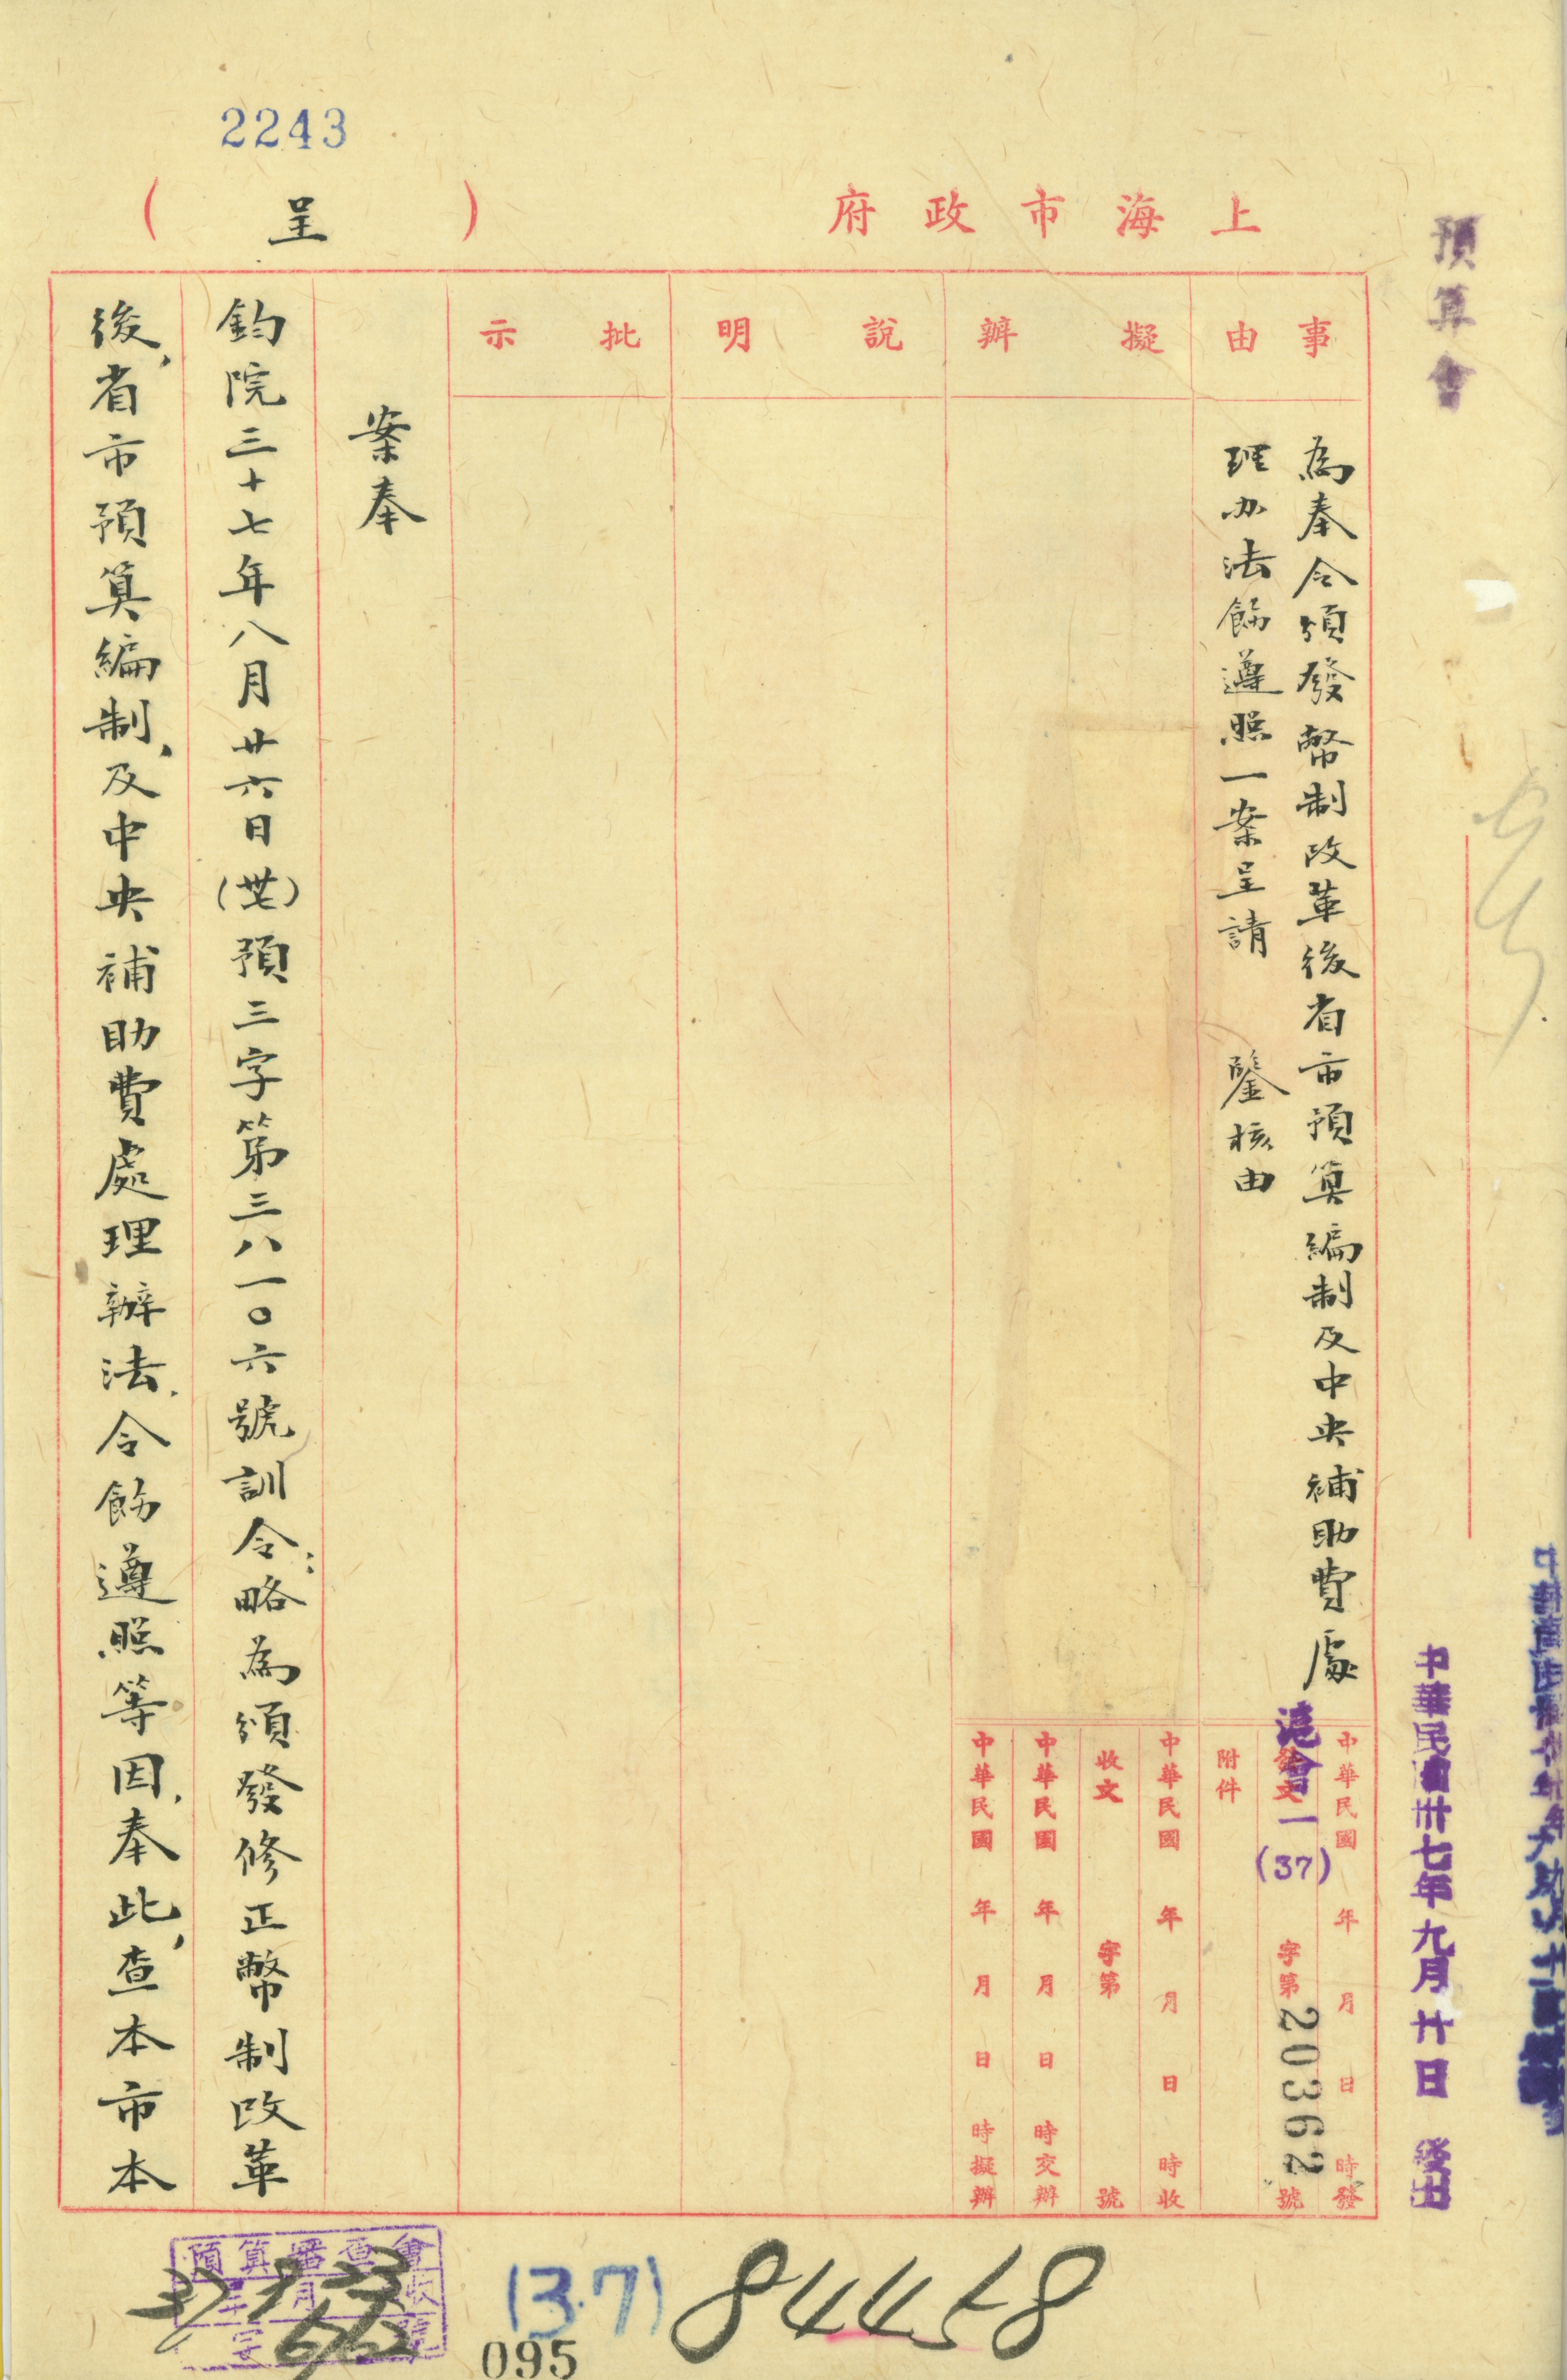 2243
上海市政府
(呈)
預算會
事由
為奉令頒發幣制改革後省市預算編制及中央補助費處
理办法飭遵照一案呈請　鑒核由
擬辦
說明
批示
中華民國　年　月　日　時發
滬會一(37)
發文　字第20362號
附件
中華民國　年　月　日　時收
收文　字第　號
中華民國　年　月　日　時交辦
中華民國　年　月　日　時擬辦
中華民國卅七年九月廿日　發出
案奉
鈞院三十七年八月廿六日(卅七)預三字第三八一〇六號訓令：略為頒發修正幣制改革
後，省市預算編制，及中央補助費處理辦法，令飭遵照等因，奉此，查本市本
預算審查會
37 9 23
(37)
84458
095